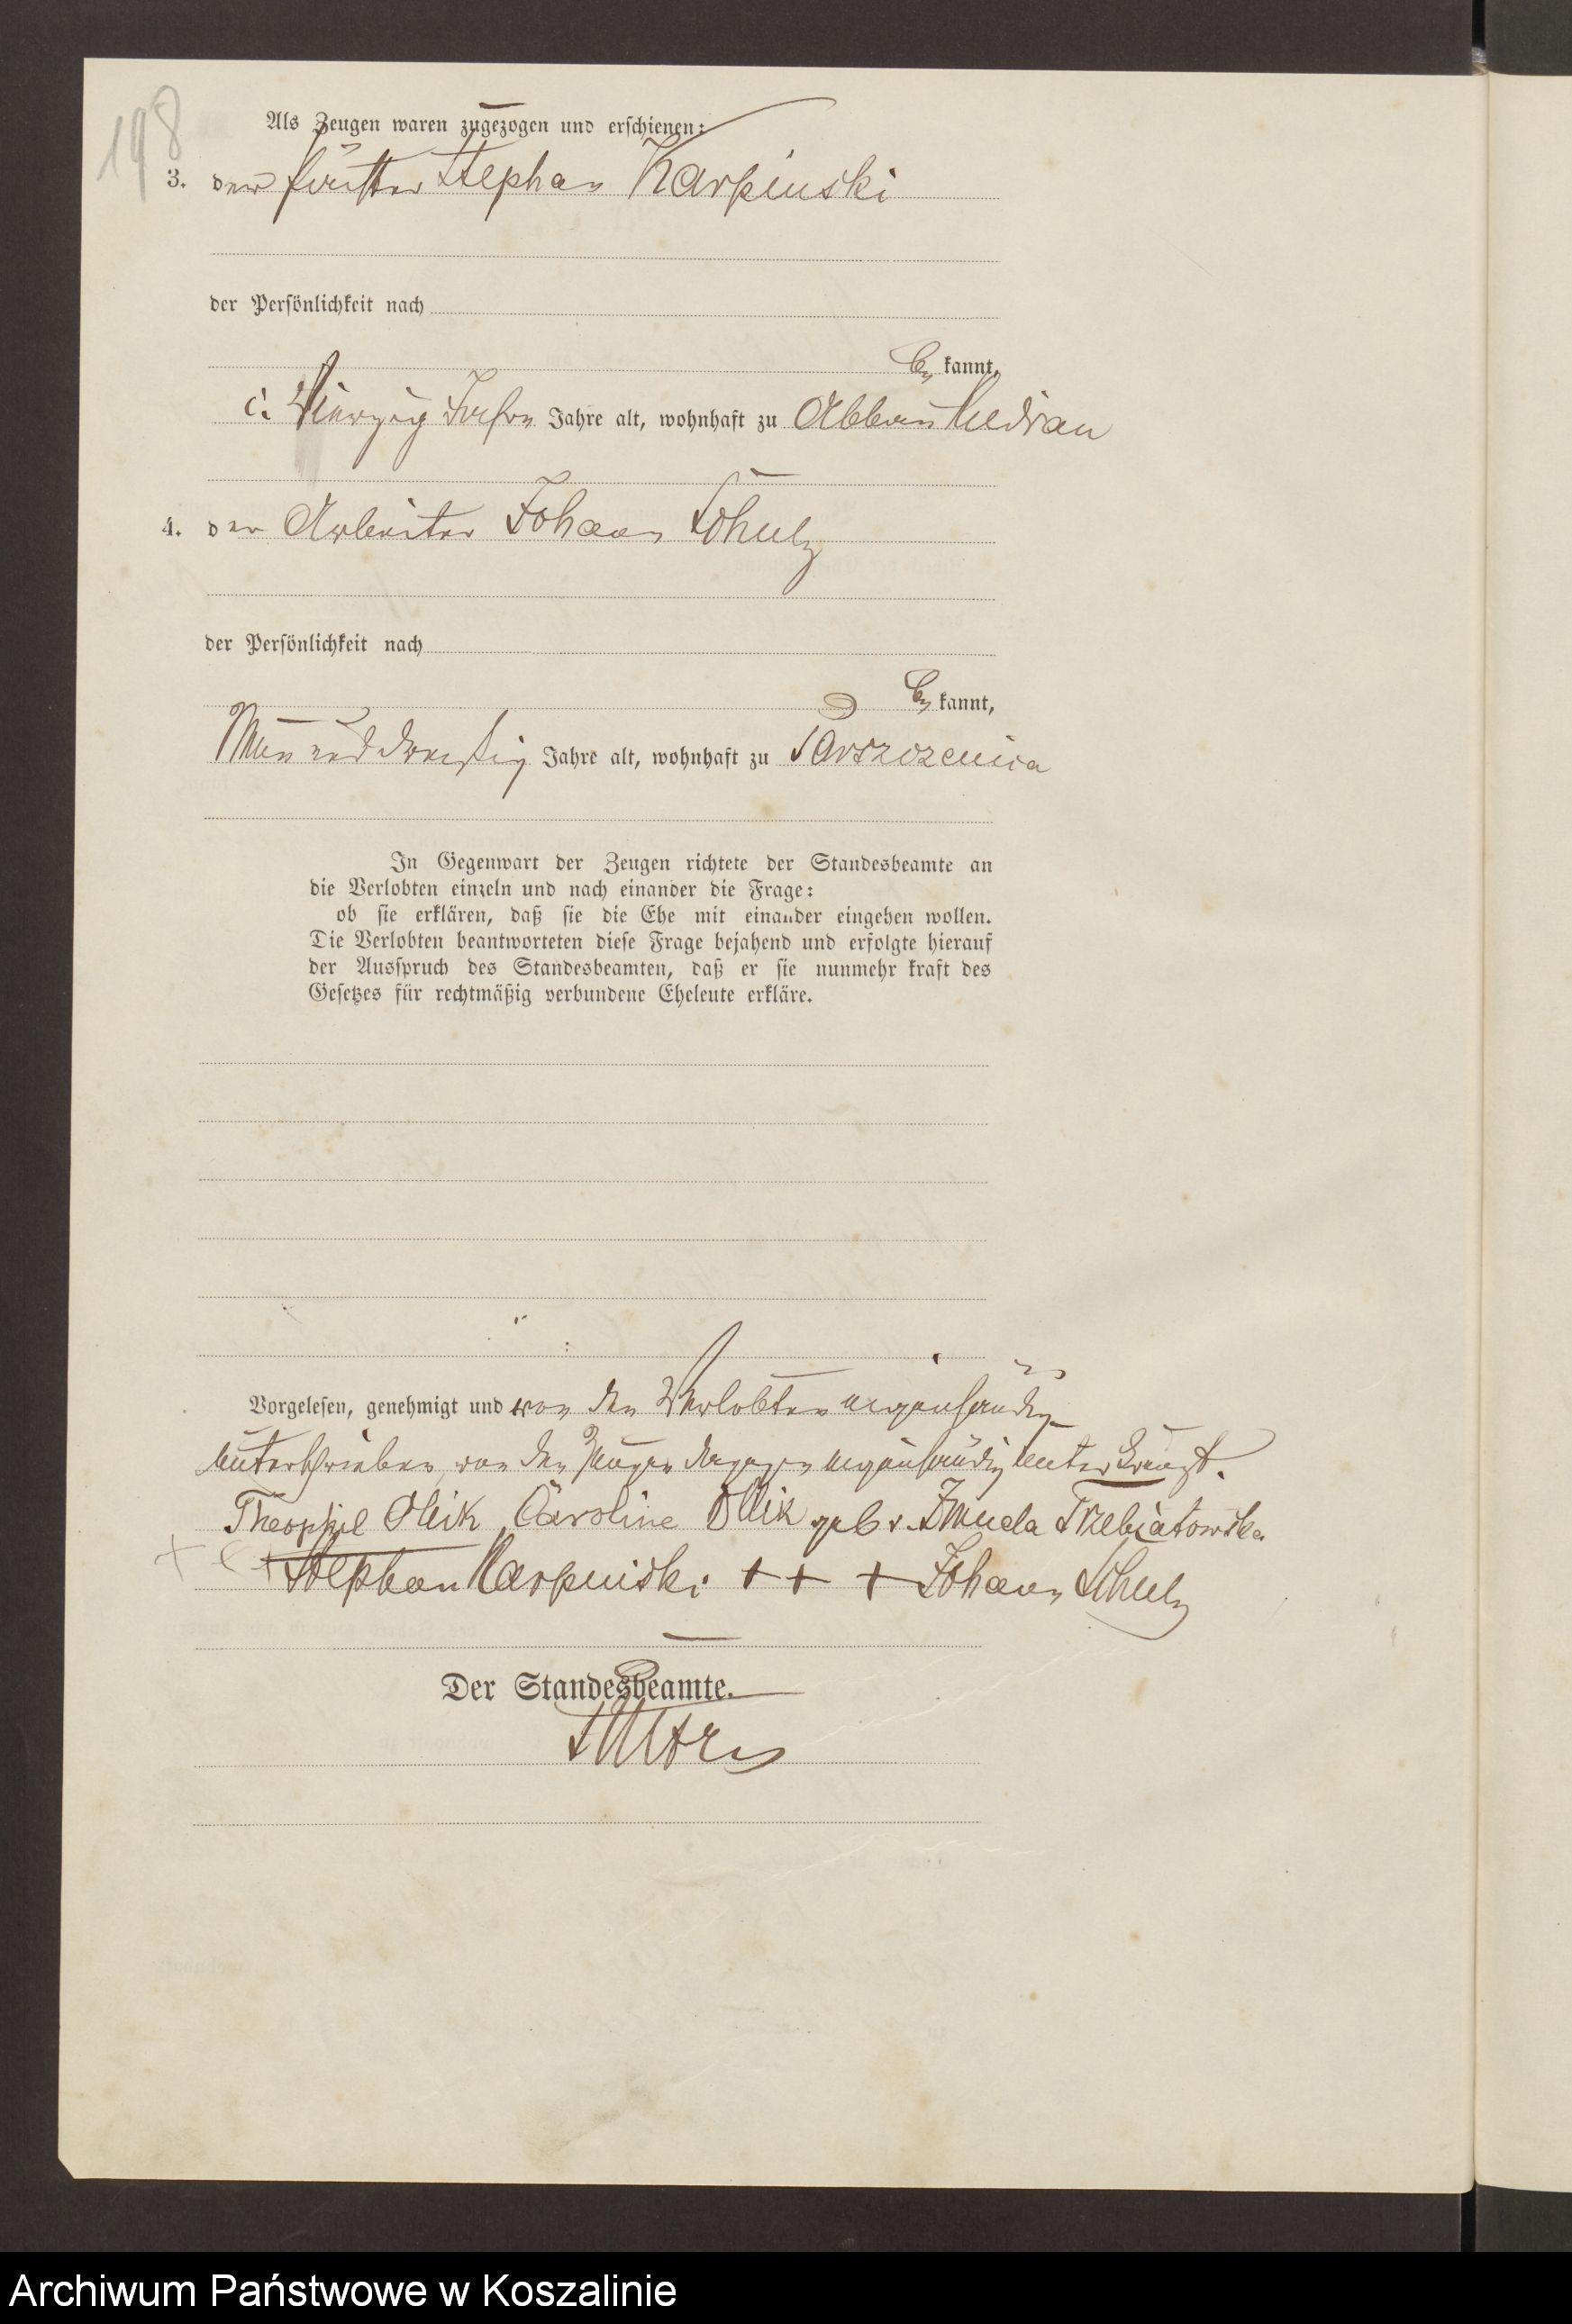 198
Als Zeugen waren zugezogen und erschienen:
3. der Förster Stephan Karpinski
der Persönlichkeit nach
be kannt,
c. Vierzig Jahre Jahre alt, wohnhaft zu Abbau
4. der Arbeiter Johann Schulz
der Persönlichkeit nach
be kannt,
Neun und dreißig Jahre alt, wohnhaft zu
In Gegenwart der Zeugen richtete der Standesbeamte an
die Verlobten einzeln und nach einander die Frage:
ob sie erklären, daß sie die Ehe mit einander eingehen wollen.
Die Verlobten beantworteten diese Frage bejahend und erfolgte hierauf
der Ausspruch des Standesbeamten, daß er sie nunmehr kraft des
Gesetzes für rechtmäßig verbundene Eheleute erkläre.
Vorgelesen, genehmigt und von den Verlobten eigenhändig
unterschrieben, von den Zeugen dagegen eigenhändig unterkreuzt.
Theophil Ollik Caroline Ollik geb. v. Zmuda Trzebiatowska
+ + + Stephan Karpinski. + + + Johann Schulz
Der Standesbeamte.
Archiwum Państwowe w Koszalinie